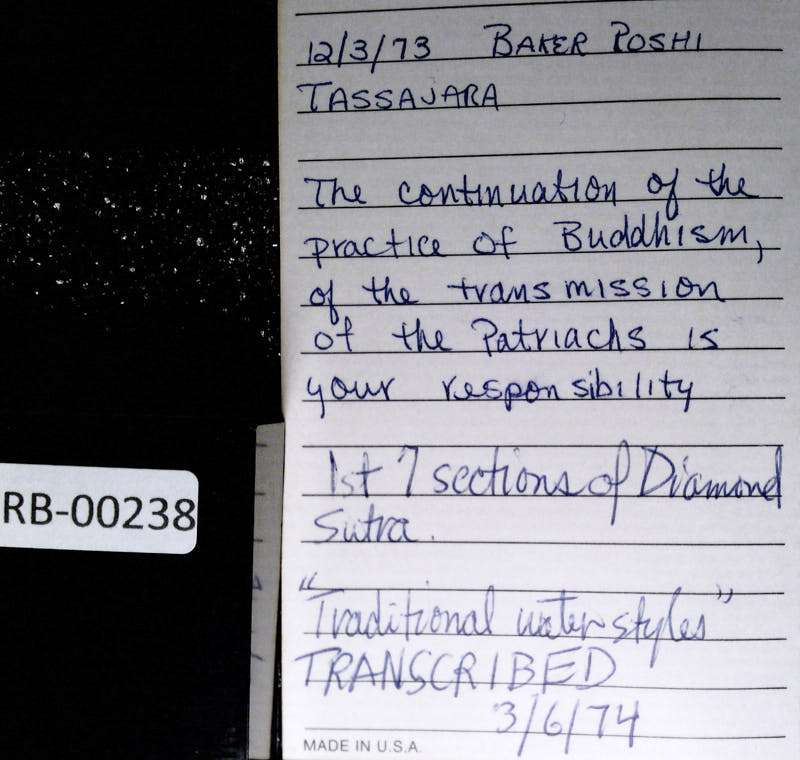 12/3/73 BAKER ROSHI
TASSAJARA
The continuation of the
practice of Buddhism,
of the transmission
of the Patriachs is
your responsibility
1st 7 sections of Diamond
Sutra.
"Traditional water styles"
TRANSCRIBED
3/6/74
MADE IN U.S.A.
RB-00238